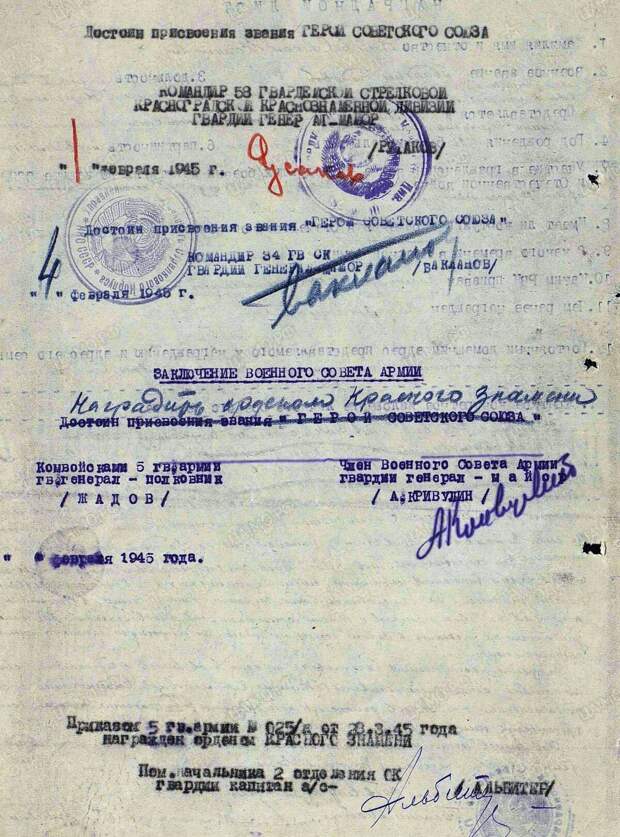 Достоин присвоения звания ГЕРОЯ СОВЕТСКОГО СОЮЗА
КОМАНДИР 58 ГВАРДЕЙСКОЙ СТРЕЛКОВОЙ
КРАСНОГРАДСКОЙ КРАСНОЗНАМЕННОЙ ДИВИЗИИ
ГВАРДИИ ГЕНЕРАЛ-МАЙОР
/РУСАКОВ/
" 1 " февраля 1945 г.
Русаков
Достоин присвоения звания "ГЕРОЯ СОВЕТСКОГО СОЮЗА".
КОМАНДИР 34 ГВ СК
ГВАРДИИ ГЕНЕРАЛ-МАЙОР /БАКЛАНОВ/
Бакланов
" 4 " февраля 1945 г.
ЗАКЛЮЧЕНИЕ ВОЕННОГО СОВЕТА АРМИИ
Наградить орденом Красного Знамени
Достоин присвоения звания "ГЕРОЙ СОВЕТСКОГО СОЮЗА"
Комвойсками 5 гв.армии Член Военного Совета Армии
гв.генерал - полковник гвардии генерал - май
/ ЖАДОВ / / А.КРИВУЛИН /
АКривулин
" " февраля 1945 года.
Приказом 5 гв.армии № 025/н от 28.3.45 года
награжден орденом КРАСНОГО ЗНАМЕНИ
Пом.начальника 2 отделения ОК
гвардии капитан а/с- / АЛЬБИТЕР/
Альбитер